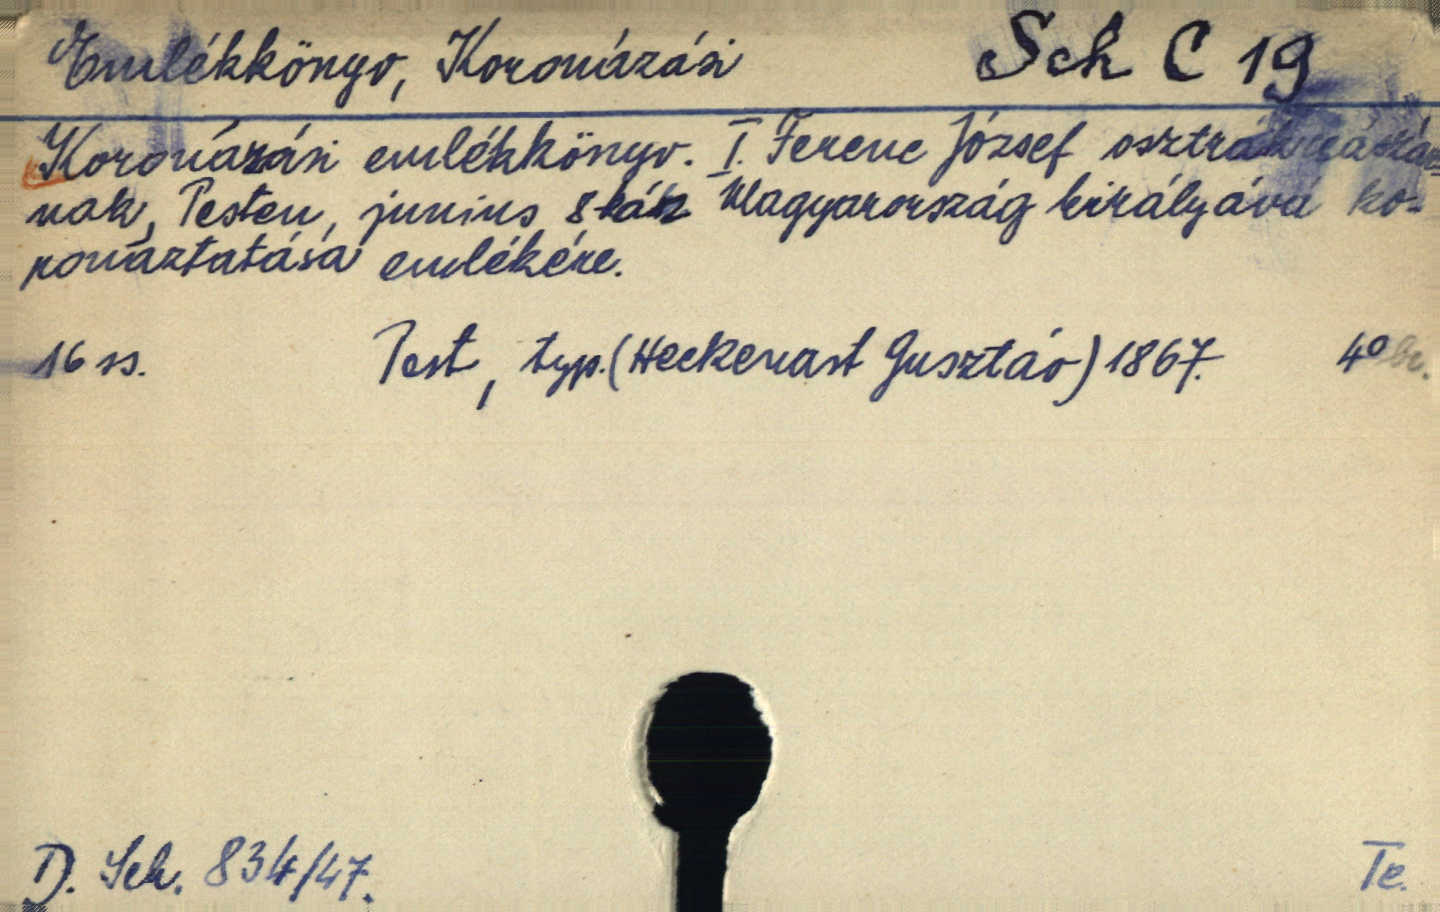 Emlékkönyv, Koronázási Sch C 19
Koronázási emlékkönyv. I. Ferenc József osztrák császár-
nak, Pesten, junius 8kán Magyarország királyává ko-
ronáztatása emlékére.
16 ss. Pest, typ. (Heckenast Gusztáv) 1867. 4° br.
D. Sch. 834/47. Te.